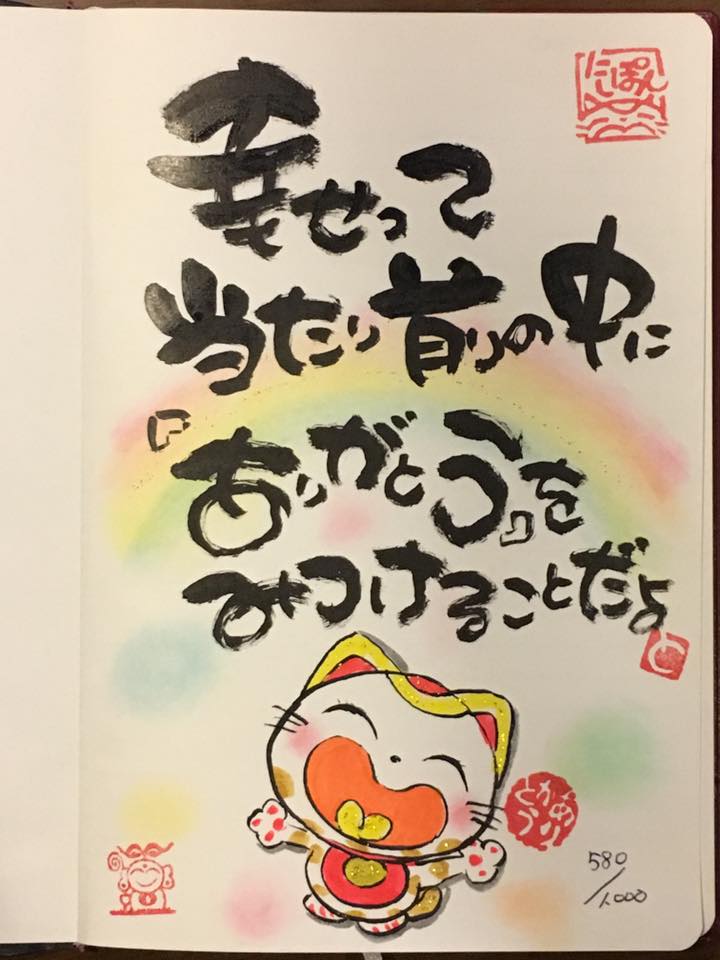 幸せって
当たり前りの中に
『ありがとう』を
みつけることだよ
にしぽん
ありがとう
580/1,000